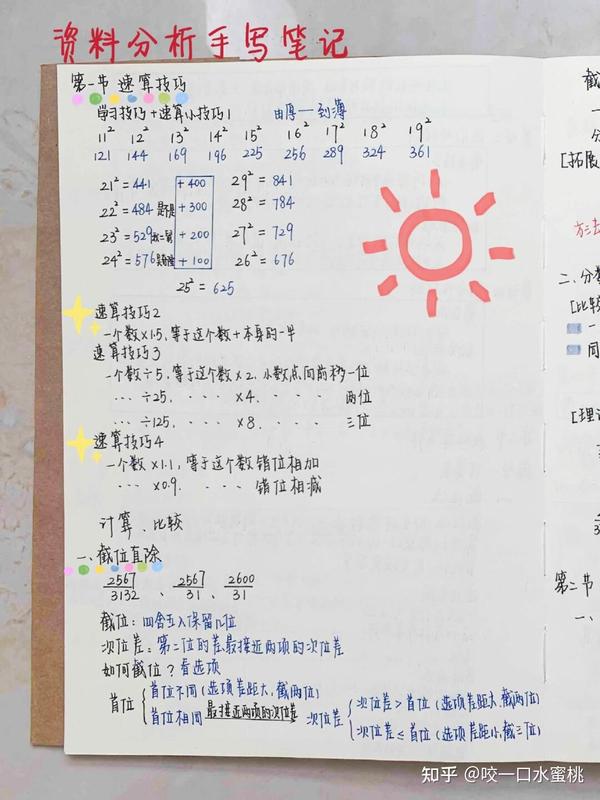 资料分析手写笔记
第一节 速算技巧
学习技巧+速算小技巧1 由厚一到薄
11² 12² 13² 14² 15² 16² 17² 18² 19²
121 144 169 196 225 256 289 324 361
21² = 441 +400 29² = 841
22² = 484 +300 28² = 784
23² = 529 +200 27² = 729
24² = 576 +100 26² = 676
25² = 625
速算技巧2
一个数×1.5, 等于这个数+本身的一半
速算技巧3
一个数÷5, 等于这个数×2, 小数点向前移一位
… ÷25, · · · ×4, · · · 两位
… ÷125, · · · ×8, · · · 三位
速算技巧4
一个数×1.1, 等于这个数错位相加
… ×0.9, · · · 错位相减
计算、比较
一、截位直除
2567/3132 、 2567/31 、 2600/31
截位: 四舍五入保留几位
次位差: 第二位的差最接近两项的次位差
如何截位? 看选项
首位 首位不同(选项差距大, 截两位)
首位相同 最接近两项的次位差 次位差 次位差>首位(选项差距大, 截两位)
次位差≤首位(选项差距小, 截三位)
截
分
[拓展
方法
二、分数
[比较
一
同
[理论
第二节
一、
知乎 @咬一口水蜜桃